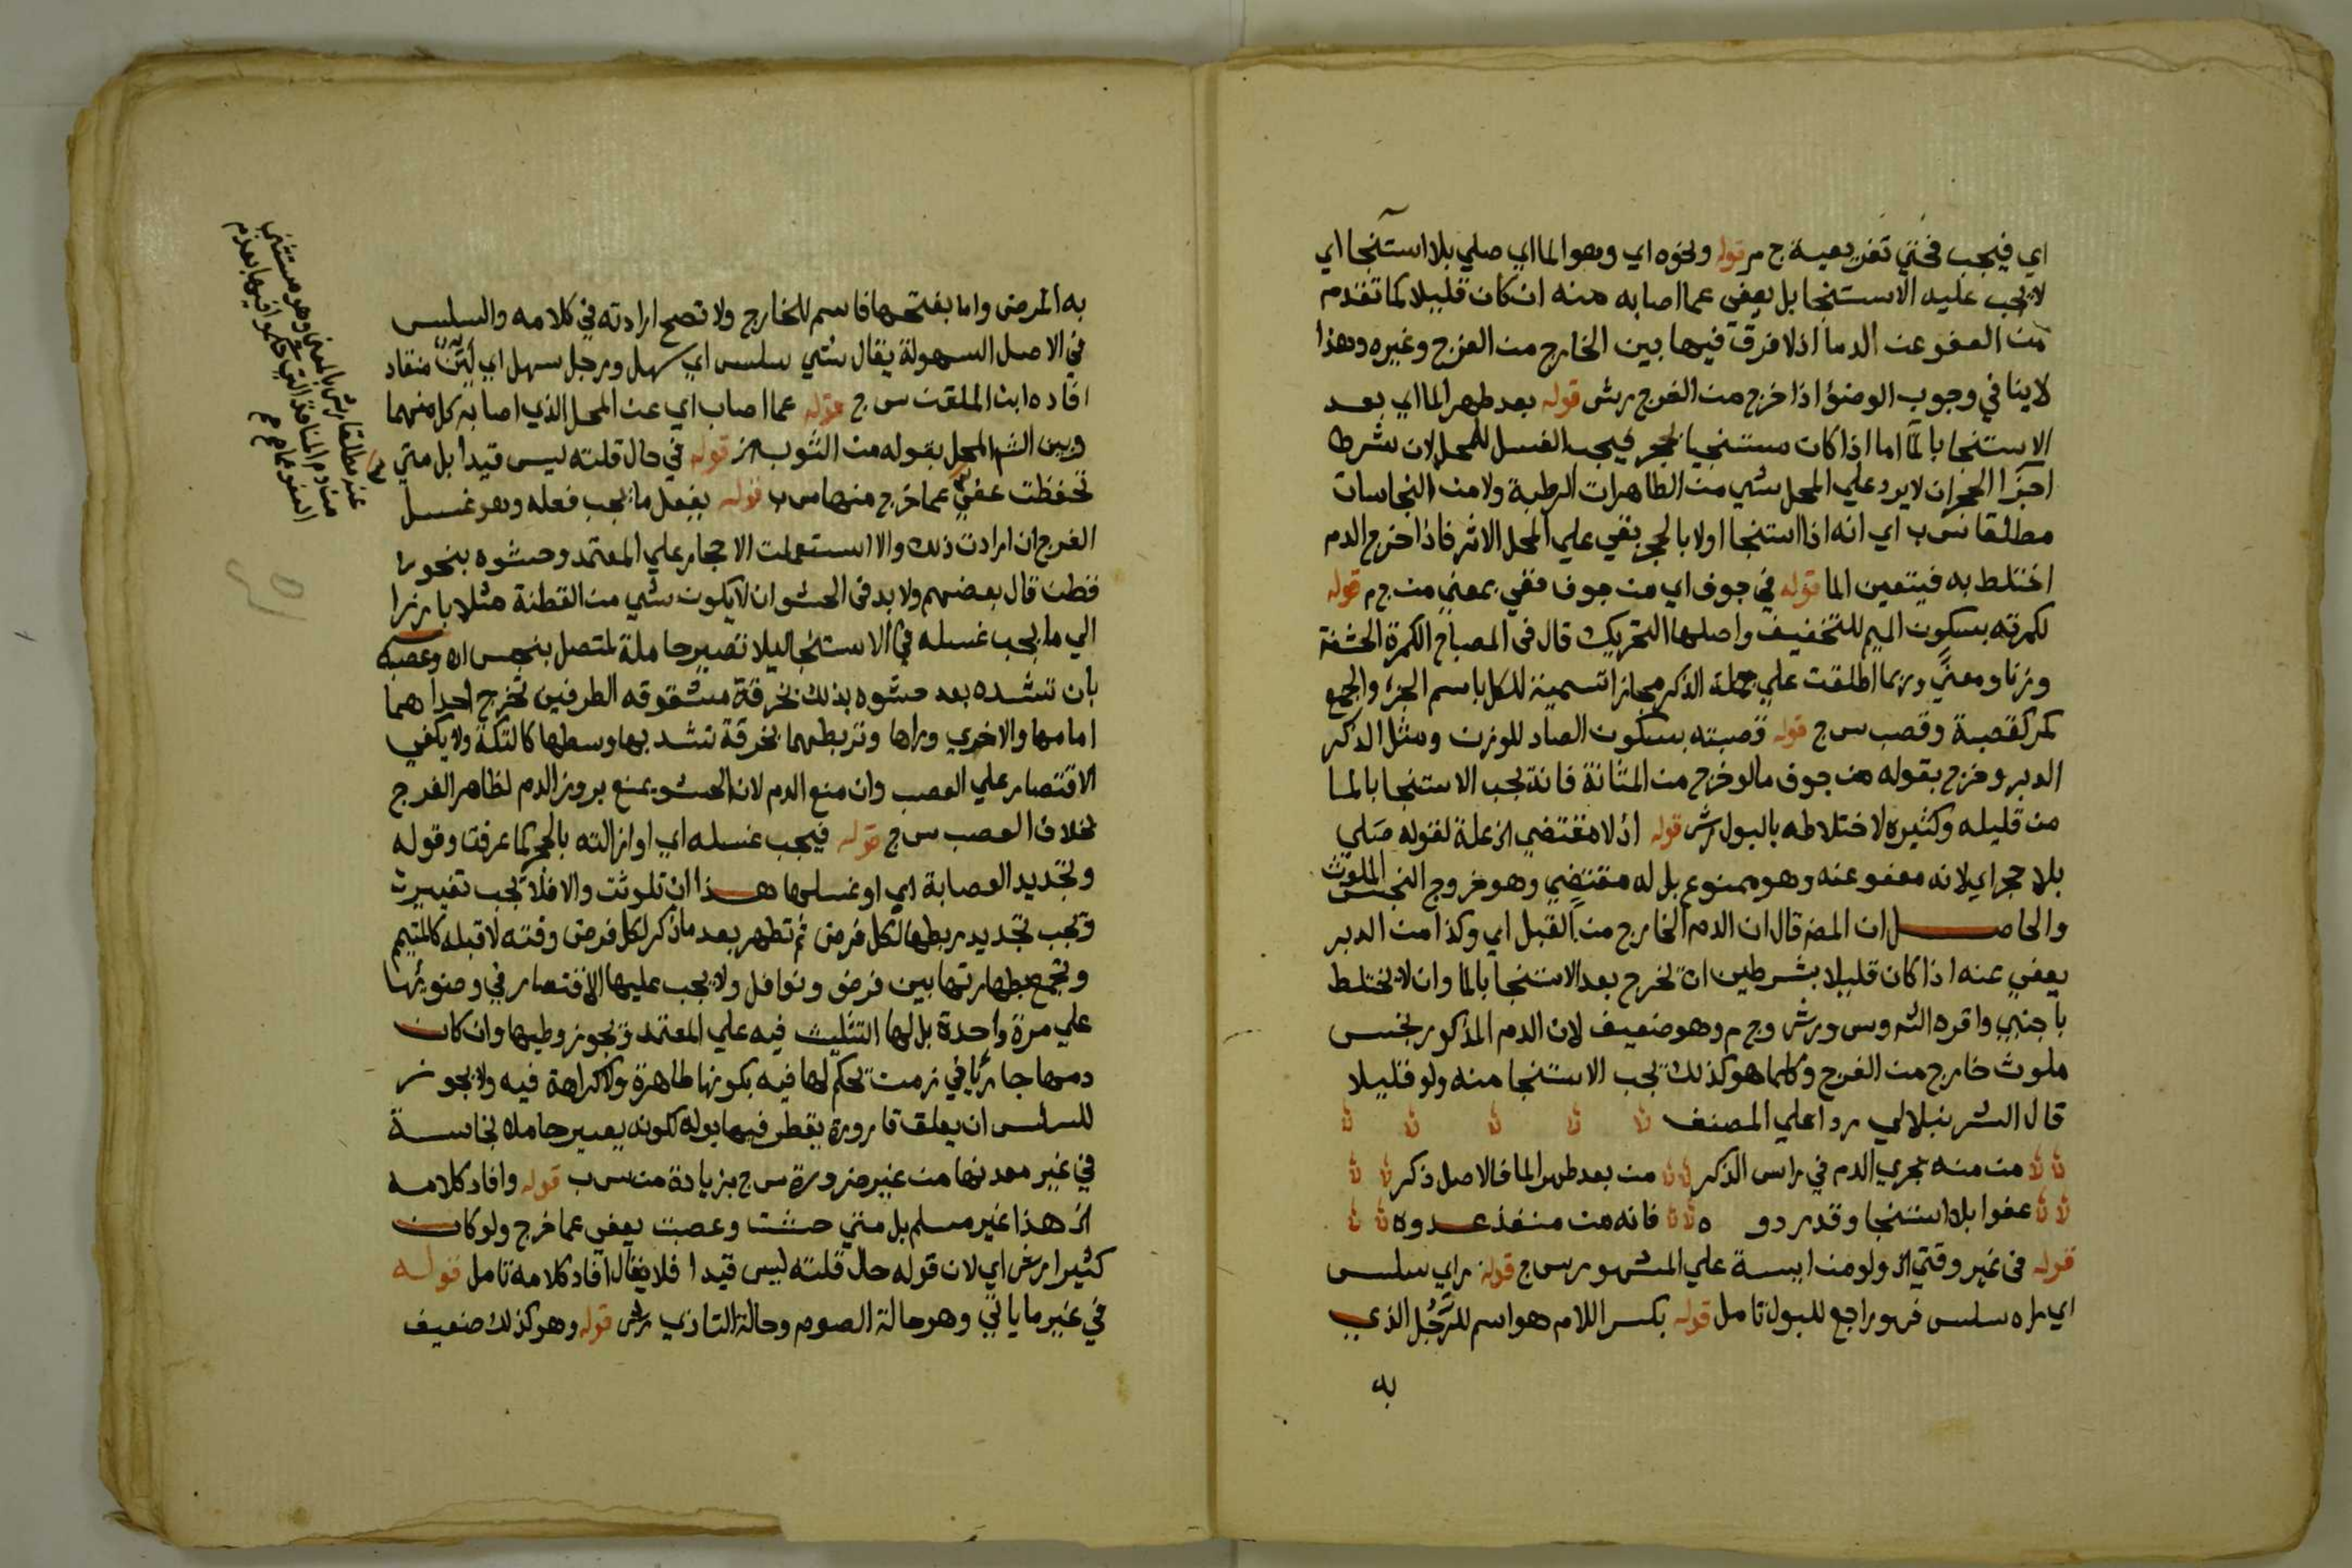 اي فيجب ففي تفريعية ج م قوله ونحوه اي وهو الماء اي صلي بلا استنجا اي
لا يجب عليه الاستنجا بل يعفي عما اصابه منه ان كان قليلا كما تقدم
من العفو عن الدما اذ لا فرق فيها بين الخارج من الفرج وغيره وهذا
لا ينافي وجوب الوضوء اذا خرج من الفرج رش قوله بعد طهر الما اي بعد
الاستنجا بالما اما اذا كان مستنجيا بحجر فيجب الغسل للمحل لان شرط
اجزا الحجر ان لا يرد علي المحل شي من الطاهرات الرطبة ولا من النجاسات
مطلقا س ب اي انه اذا استنجا اولا بالحجر بقي علي المحل الاثر فاذا خرج الدم
اختلط به فيتعين الما قوله في جوف اي من جوف ففي بمعني من ج م قوله
لكمرته بسكون الميم للتخفيف واصلها التحريك قال في المصباح الكمرة الحشفة
وزنا ومعني وربما اطلقت علي جملة الذكر مجازا تسمية للكل باسم الجزء والجمع
كمر كقصبة وقصب س ج قوله قصبته بسكون الصاد للوزن ومثل الذكر
الدبر وخرج بقوله من جوف ما لو خرج من المثانة فانه يجب الاستنجا بالما
من قليله وكثيره لاختلاطه بالبول رش قوله اذ لا مقتضي الخ علة لقوله صلي
بلا حجر اي لانه معفو عنه وهو ممنوع بل له مقتضي وهو خروج النجس الملوث
والحاصل ان المص قال ان الدم الخارج من القبل اي وكذا من الدبر
يعفي عنه اذا كان قليلا بشرطين ان يخرج بعد الاستنجا بالما وان لا يختلط
باجنبي واقره الشم وس ورش وج م وهو ضعيف لان الدم المذكور نجس
ملوث خارج من الفرج وكلما هو كذلك يجب الاستنجا منه ولو قليلا
قال الشرنبلالي ردا علي المصنف
من منه يجري الدم في راس الذكر من بعد طهر الما فالاصل ذكر
عفوا بلا استنجا وقد ردوه فانه من منفذ عدوه
قوله في غير وقتي الخ ولو من ايسة علي المشهور س ج قوله راي سلس
اي راه سلس فهو راجع للبول تامل قوله بكسر اللام هو اسم للرجل الذي
به
به المرض واما بفتحها فاسم للخارج ولا تصح ارادته في كلامه والسلس
في الاصل السهولة يقال شي سلس اي سهل ورجل سهل اي لين منقاد
افاده ابن الملقن س ج قوله عما اصاب اي عن المحل الذي اصابه كل منهما
وبين الشم المحل بقوله من الثوب الخ قوله في حال قلته ليس قيدا بل متي
تحفظت عفي عما خرج منها س ب قوله بفعل ما يجب فعله وهو غسل
الفرج ان ارادت ذلك والا استعملت الاحجار علي المعتمد وحشوه بنحو
قطن قال بعضهم ولا بد في الحشو ان لا يكون شي من القطنة مثلا بارزا
الي ما يجب غسله في الاستنجا ليلا تصير حاملة لمتصل بنجس اه وعصبه
بان تشده بعد حشوه بذلك بخرقة مشقوقه الطرفين تخرج احداهما
امامها والاخري وراها وتربطهما بخرقة تشد بها وسطها كالتكة ولا يكفي
الاقتصار علي العصب وان منع الدم لان الحشو يمنع بروز الدم لظاهر الفرج
بخلاف العصب س ج قوله فيجب غسله اي او ازالته بالحجر كما عرفت وقوله
وتجديد العصابة اي او غسلها هذا ان تلوثت والا فلا يجب تغيير
ويجب تجديد ربطها لكل فرض ثم تطهر بعد ما ذكر لكل فرض وقته لا قبله كالمتيمم
وتجمع بطهارتها بين فرض ونوافل ولا يجب عليها الاقتصار في وضوئها
علي مرة واحدة بل لها التثليث فيه علي المعتمد ويجوز وطيها وان كان
دمها جاريا في زمن يحكم لها فيه بكونها طاهرة ولا كراهة فيه ولا يجوز
للسلس ان يعلق قارورة يقطر فيها بوله لكونه يصير حاملا نجاسة
في غير معدنها من غير ضرورة س ج بزيادة من س ب قوله وافاد كلامه
الخ هذا غير مسلم بل متي حشت وعصبت يعفي عما خرج ولو كان
كثيرا رش اي لان قوله حال قلته ليس قيدا فلا يقال افاد كلامه تامل قوله
في غير ما ياتي وهو حالة الصوم وحالة التاذي رش قوله وهو كذلك ضعيف